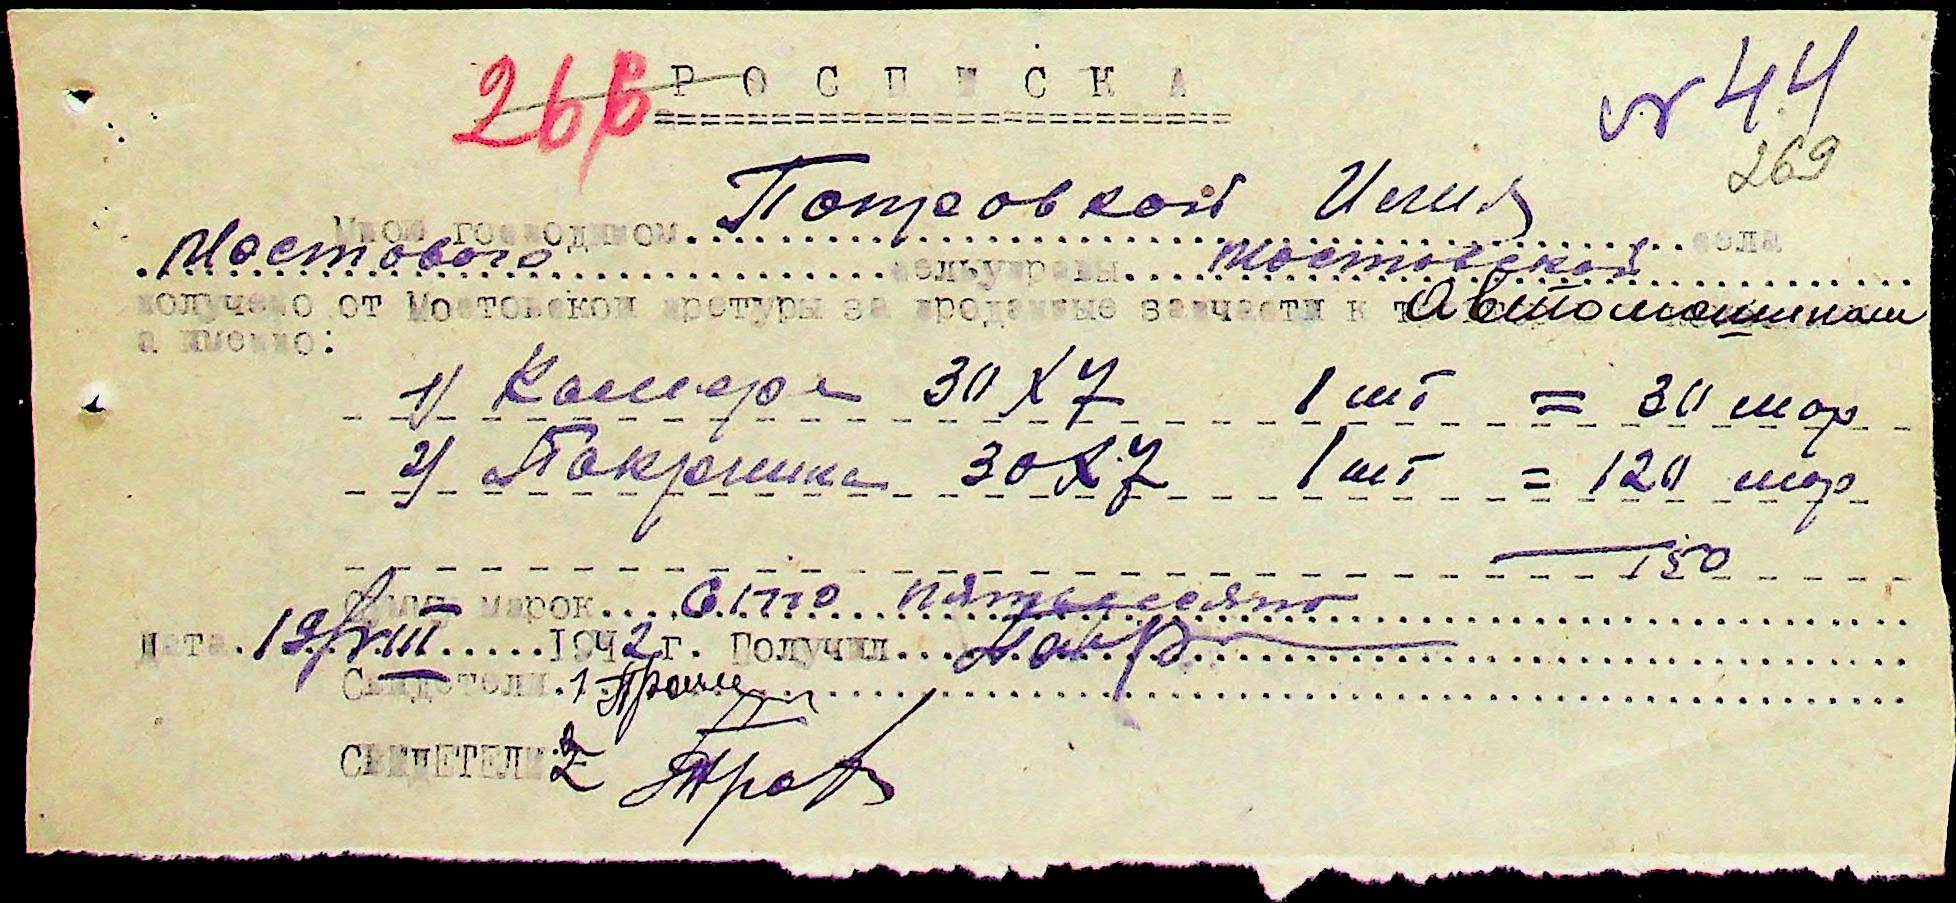 266 РОСПИСКА № 44
269
Мною господином Потровкой Илия села
Мостового сельуправы Мостовской
получено от Мостовской претуры за проданные запчасти к Автомашинам
а именно:
1) Камера 30 X 7 1 шт = 30 мар
2) Покришка 30 X 7 1 шт = 120 мар
150
Сумма марок сто пятьдесят
Дата 19/VIII 1942 г. Получил
Свидетели 1
СВИДЕТЕЛИ 2